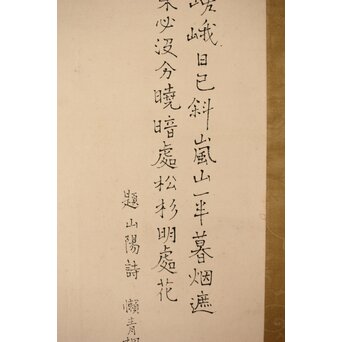 嵯峨日已斜嵐山一半暮烟遮
必没分曉暗處松杉明處花
題山陽詩 懶青